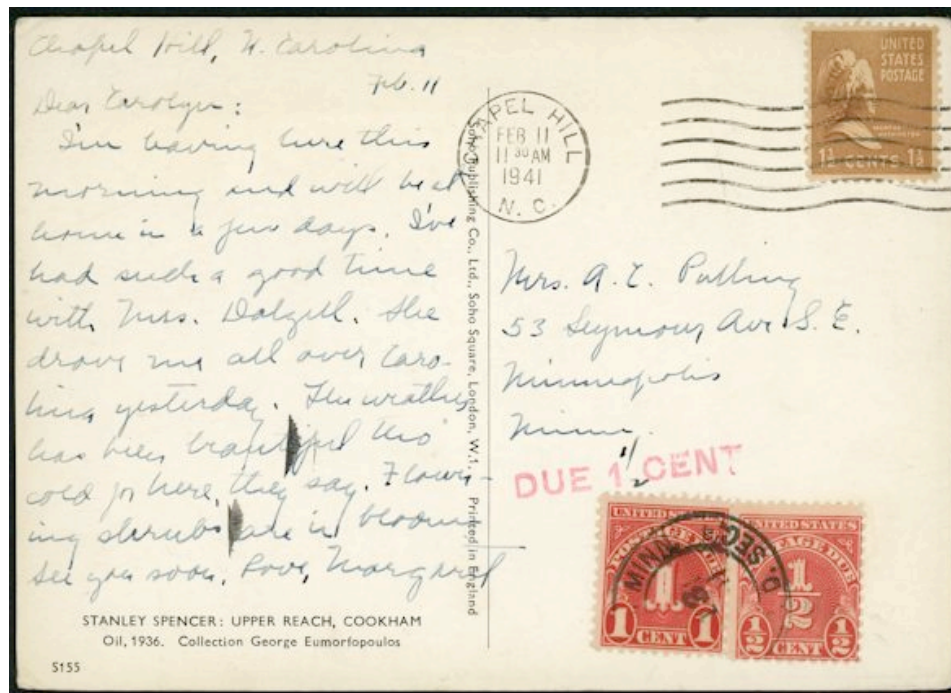 Chapel Hill, N. Carolina
Feb. 11
Dear Carolyn:
I'm leaving here this
morning and will be at
home in a few days. I've
had such a good time
with Mrs. Dalzell. She
drove me all over Caro-
lina yesterday. The weather
has been beautiful tho'
cold for here, they say. Flower-
ing shrubs are in bloom
See you soon. Love, Margaret
STANLEY SPENCER: UPPER REACH, COOKHAM
Oil, 1936. Collection George Eumorfopoulos
S155
Soho Publishing Co., Ltd., Soho Square, London, W.1. Printed in England
CHAPEL HILL
FEB 11
11 30 AM
1941
N. C.
UNITED
STATES
POSTAGE
MARTHA
WASHINGTON
1½ CENTS 1½
Mrs. A. C.
53 Seymour Ave S. E.
Minneapolis
Minn.
DUE 1 CENT
1/2
UNITED STATES
POSTAGE DUE
1
1 CENT 1
UNITED STATES
POSTAGE DUE
1/2
1/2 CENT 1/2
MINN.